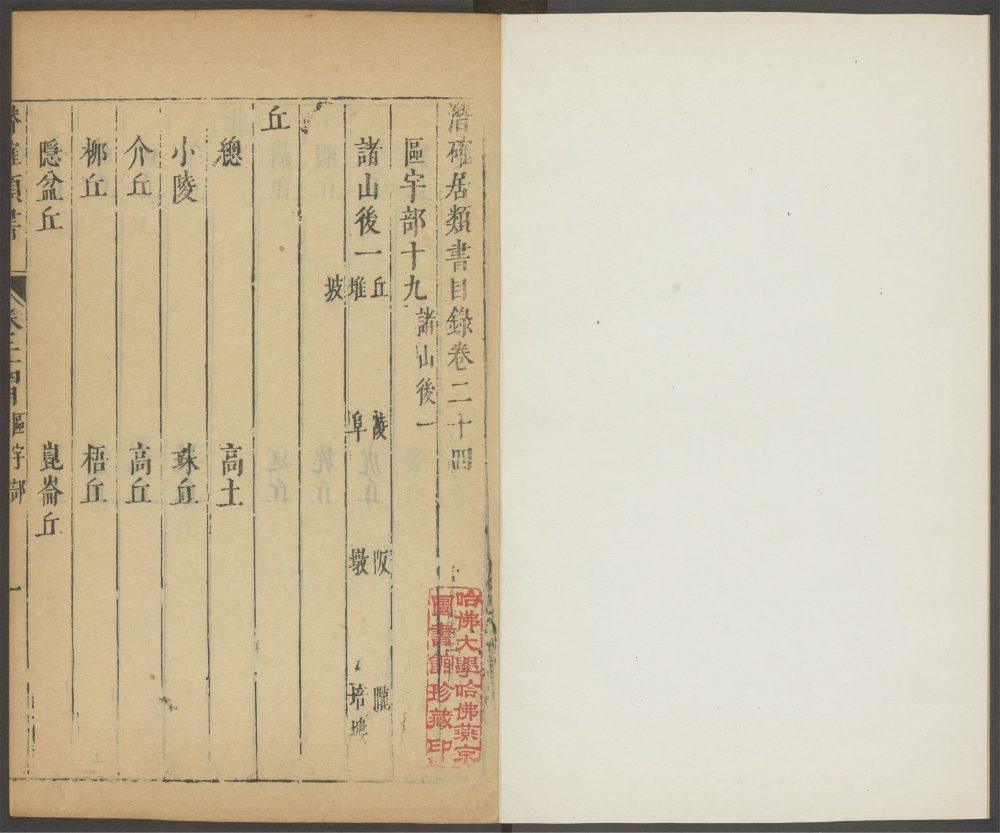 潛確居類書目錄卷二十四
區宇部十九 諸山後一
諸山後一 丘 陵 阪 隴
堆 阜 墩 培塿
坡
丘
總 高士
小陵 珠丘
介丘 高丘
柳丘 梧丘
隱盆丘 崑崙丘
潛確類書 卷二十四 區宇部 一
哈佛大學哈佛燕京
圖書館珍藏印